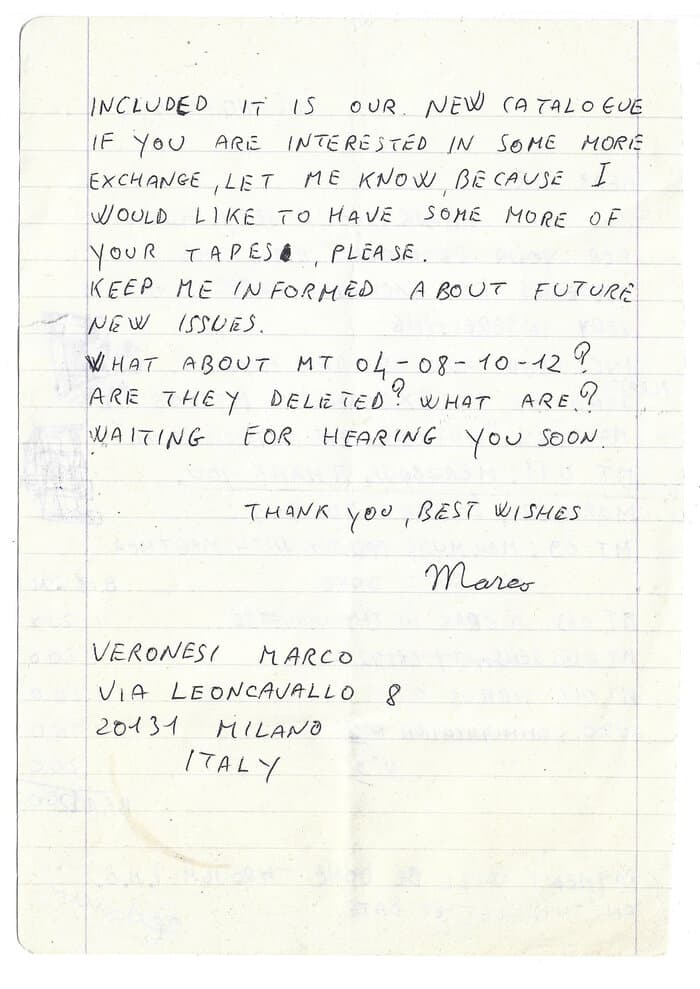 INCLUDED IT IS OUR NEW CATALOGUE
IF YOU ARE INTERESTED IN SOME MORE
EXCHANGE, LET ME KNOW, BECAUSE I
WOULD LIKE TO HAVE SOME MORE OF
YOUR TAPES, PLEASE.
KEEP ME INFORMED ABOUT FUTURE
NEW ISSUES.
WHAT ABOUT MT 04-08-10-12?
ARE THEY DELETED? WHAT ARE?
WAITING FOR HEARING YOU SOON.
THANK YOU, BEST WISHES
Marco
VERONESI MARCO
VIA LEONCAVALLO 8
20131 MILANO
ITALY